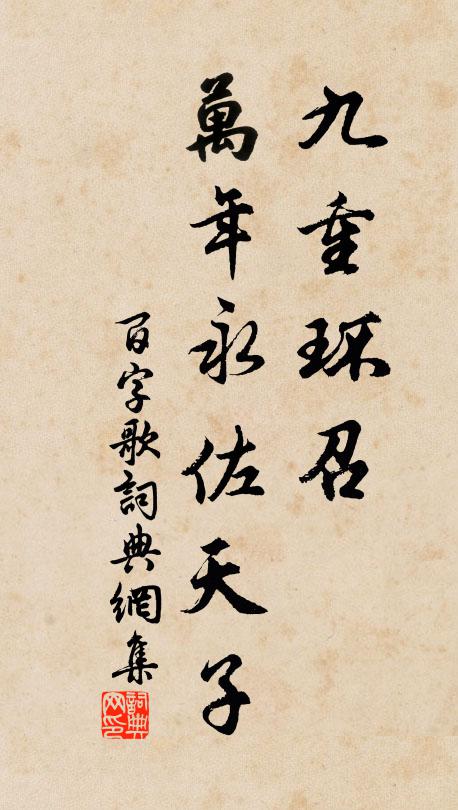 九重环召
萬年永佐天子
百字歌詞典網集
詞典网印